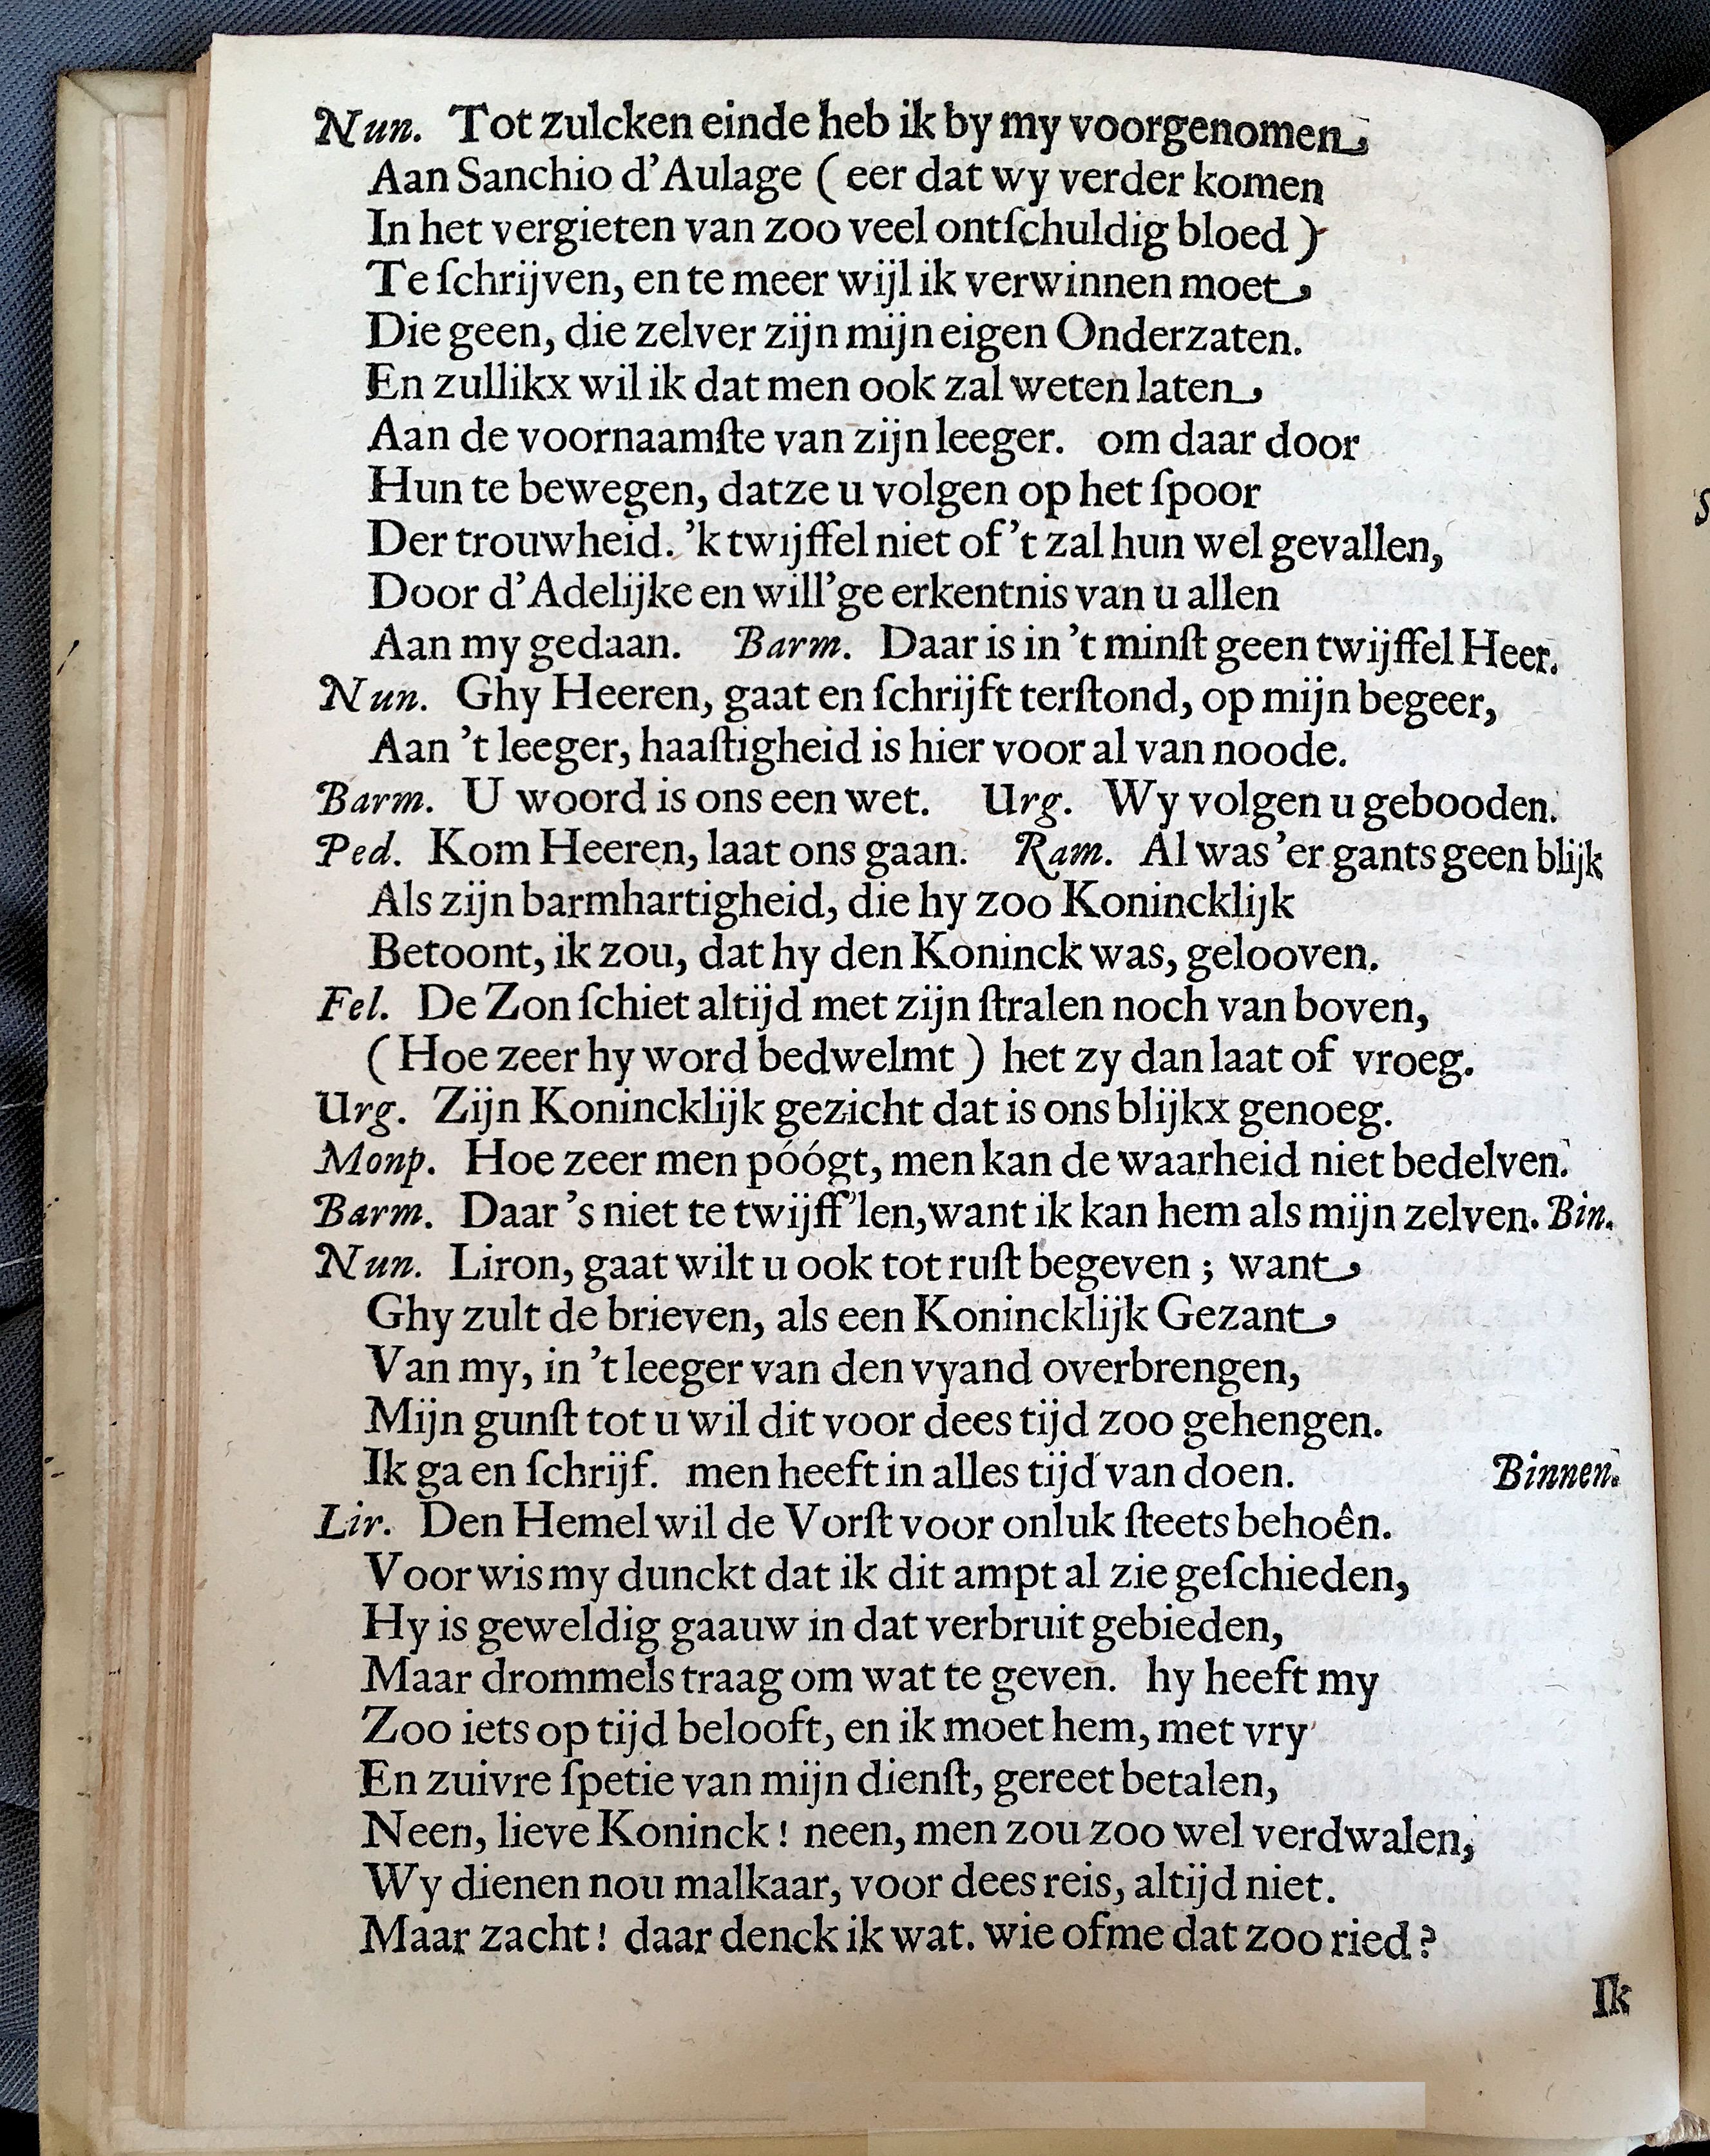 Nun. Tot zulcken einde heb ik by my voorgenomen
Aan Sanchio d'Aulage ( eer dat wy verder komen
In het vergieten van zoo veel ontſchuldig bloed )
Te ſchrijven, en te meer wijl ik verwinnen moet
Die geen, die zelver zijn mijn eigen Onderzaten.
En zullikx wil ik dat men ook zal weten laten
Aan de voornaamſte van zijn leeger. om daar door
Hun te bewegen, datze u volgen op het ſpoor
Der trouwheid. 'k twijffel niet of 't zal hun wel gevallen,
Door d'Adelijke en will'ge erkentnis van u allen
Aan my gedaan. Barm. Daar is in 't minſt geen twijffel Heer.
Nun. Ghy Heeren, gaat en ſchrijft terſtond, op mijn begeer,
Aan 't leeger, haaſtigheid is hier voor al van noode.
Barm. U woord is ons een wet. Urg. Wy volgen u gebooden.
Ped. Kom Heeren, laat ons gaan. Ram. Al was 'er gants geen blijk
Als zijn barmhartigheid, die hy zoo Konincklijk
Betoont, ik zou, dat hy den Koninck was, gelooven.
Fel. De Zon ſchiet altijd met zijn ſtralen noch van boven,
( Hoe zeer hy word bedwelmt ) het zy dan laat of vroeg.
Urg. Zijn Konincklijk gezicht dat is ons blijkx genoeg.
Monp. Hoe zeer men póógt, men kan de waarheid niet bedelven.
Barm. Daar 's niet te twijff'len, want ik kan hem als mijn zelven. Bin.
Nun. Liron, gaat wilt u ook tot ruſt begeven ; want
Ghy zult de brieven, als een Konincklijk Gezant
Van my, in 't leeger van den vyand overbrengen,
Mijn gunſt tot u wil dit voor dees tijd zoo gehengen.
Ik ga en ſchrijf. men heeft in alles tijd van doen. Binnen.
Lir. Den Hemel wil de Vorſt voor onluk ſteets behoên.
Voor wis my dunckt dat ik dit ampt al zie geſchieden,
Hy is geweldig gaauw in dat verbruit gebieden,
Maar drommels traag om wat te geven. hy heeft my
Zoo iets op tijd belooft, en ik moet hem, met vry
En zuivre ſpetie van mijn dienſt, gereet betalen,
Neen, lieve Koninck ! neen, men zou zoo wel verdwalen,
Wy dienen nou malkaar, voor dees reis, altijd niet.
Maar zacht ! daar denck ik wat. wie ofme dat zoo ried ?
Ik